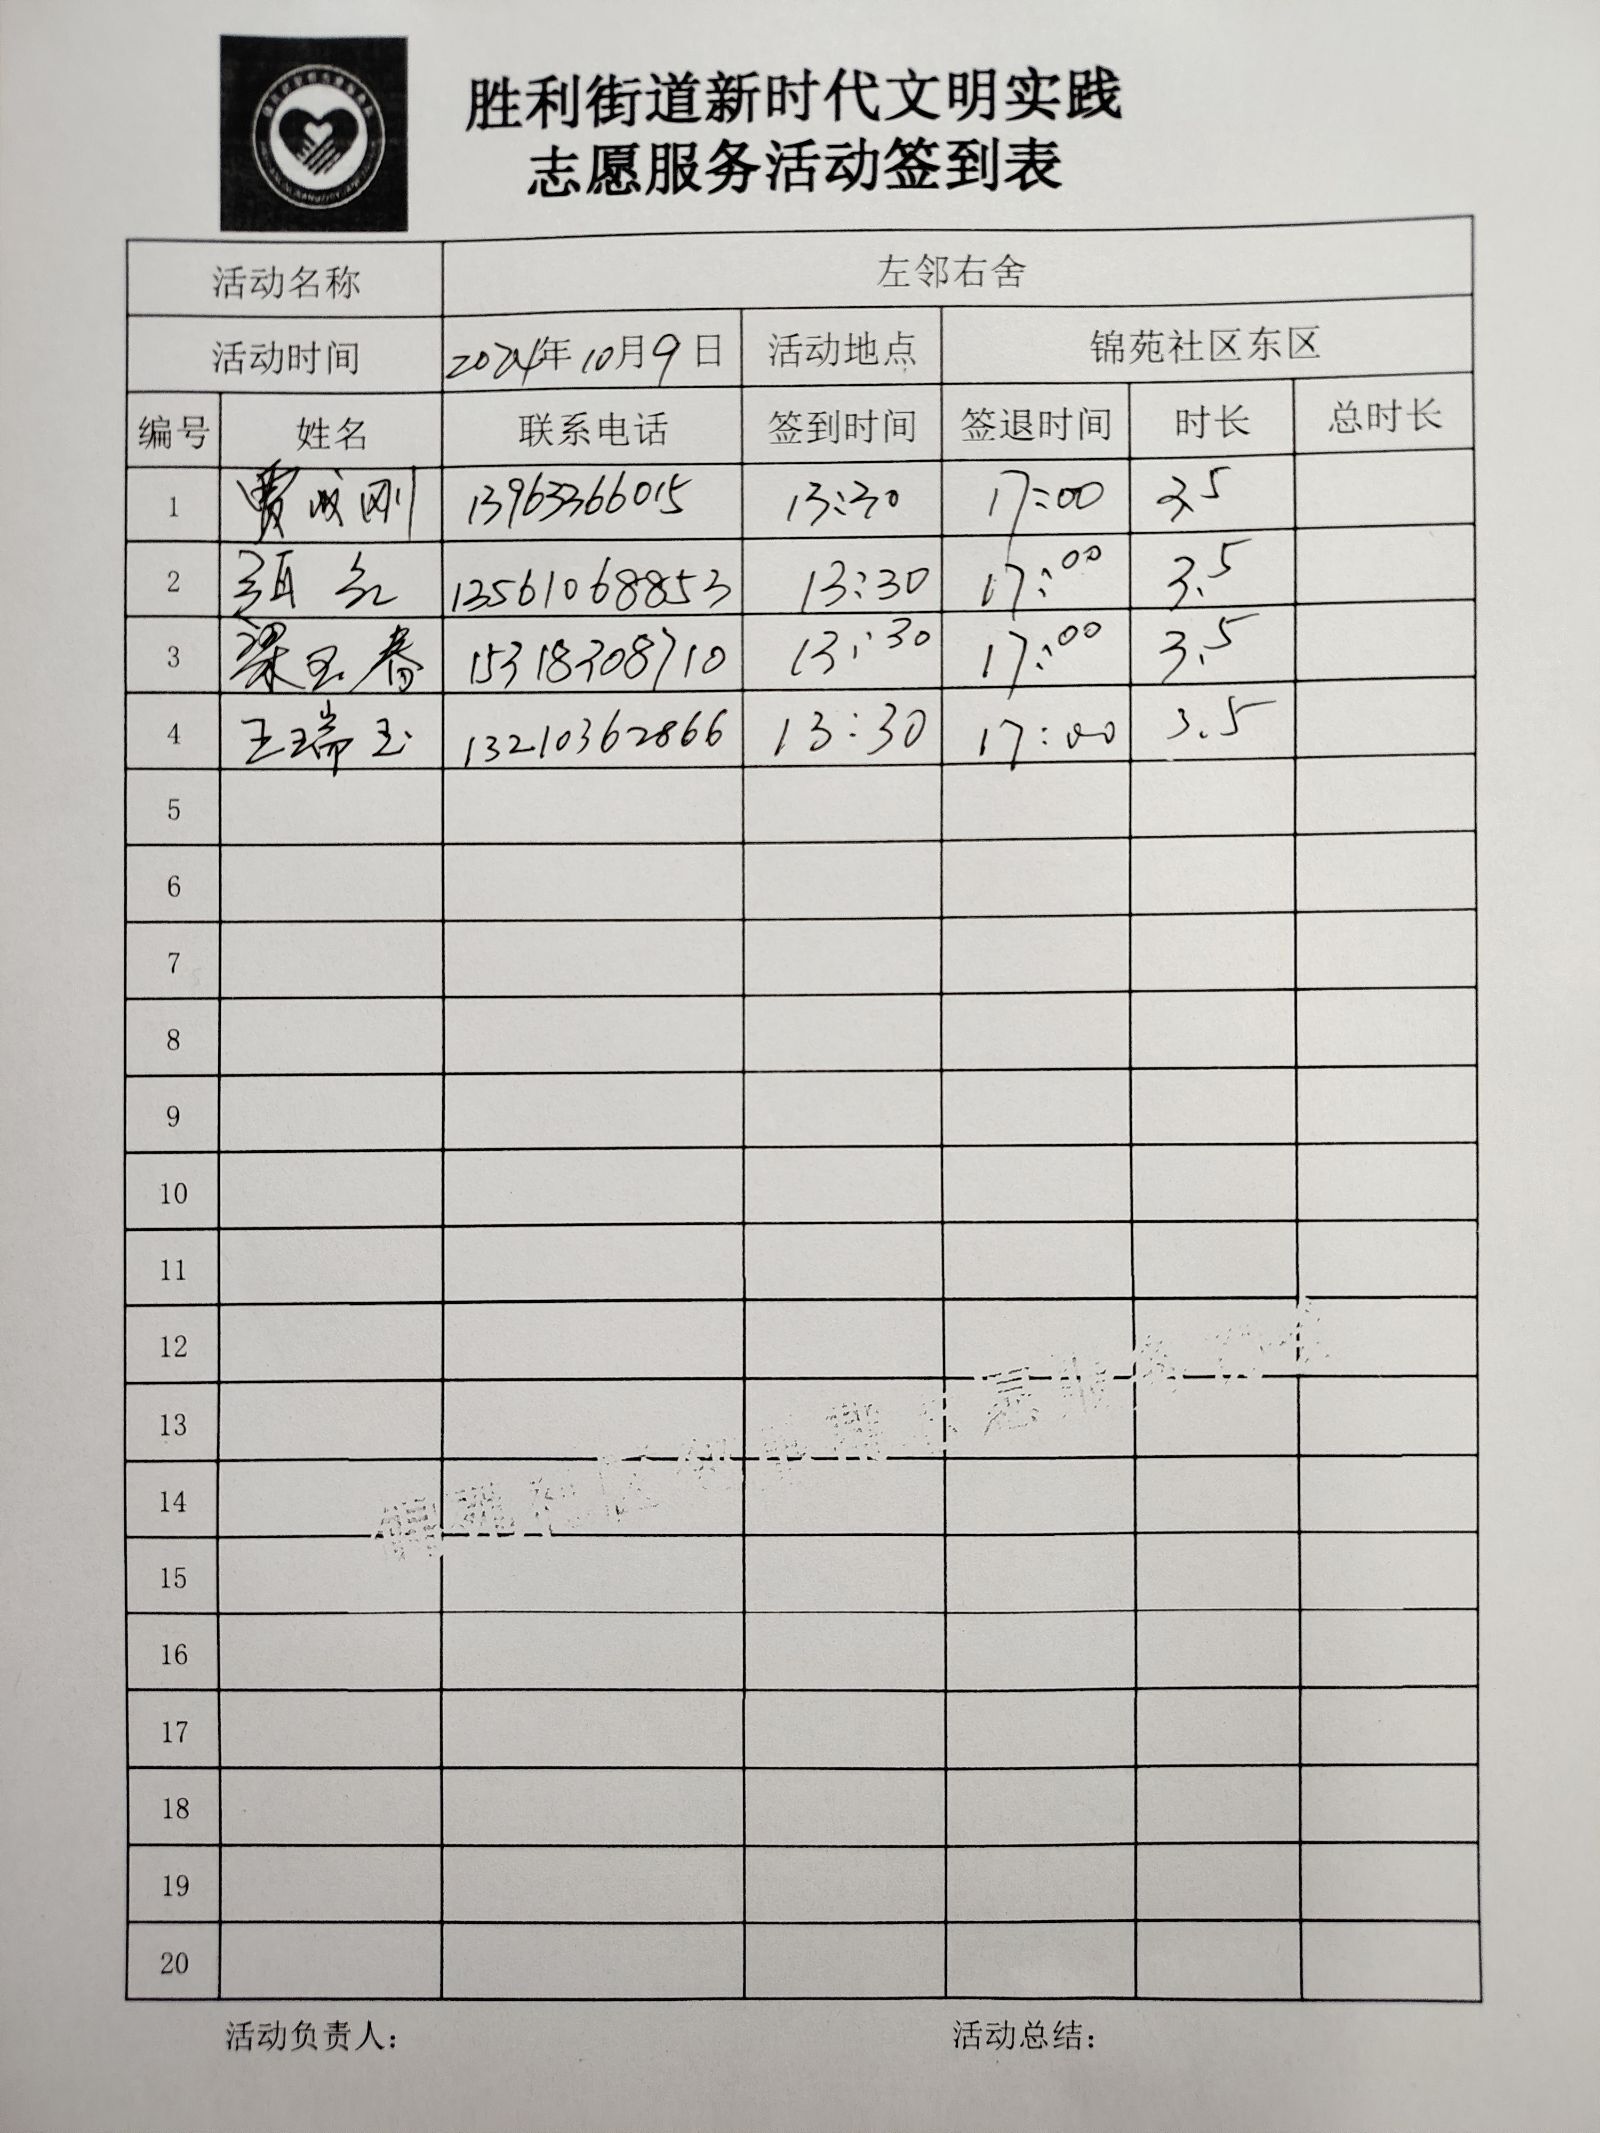 胜利街道新时代文明实践
志愿服务活动签到表
活动名称 左邻右舍
活动时间 2024年10月9日 活动地点 锦苑社区东区
编号 姓名 联系电话 签到时间 签退时间 时长 总时长
1 贾成刚 13963366015 13:30 17:00 3.5
2 13561068853 13:30 17:00 3.5
3 梁玉春 15318308710 13:30 17:00 3.5
4 王瑞玉 13210362866 13:30 17:00 3.5
5
6
7
8
9
10
11
12
13
14
15
16
17
18
19
20
活动负责人： 活动总结：